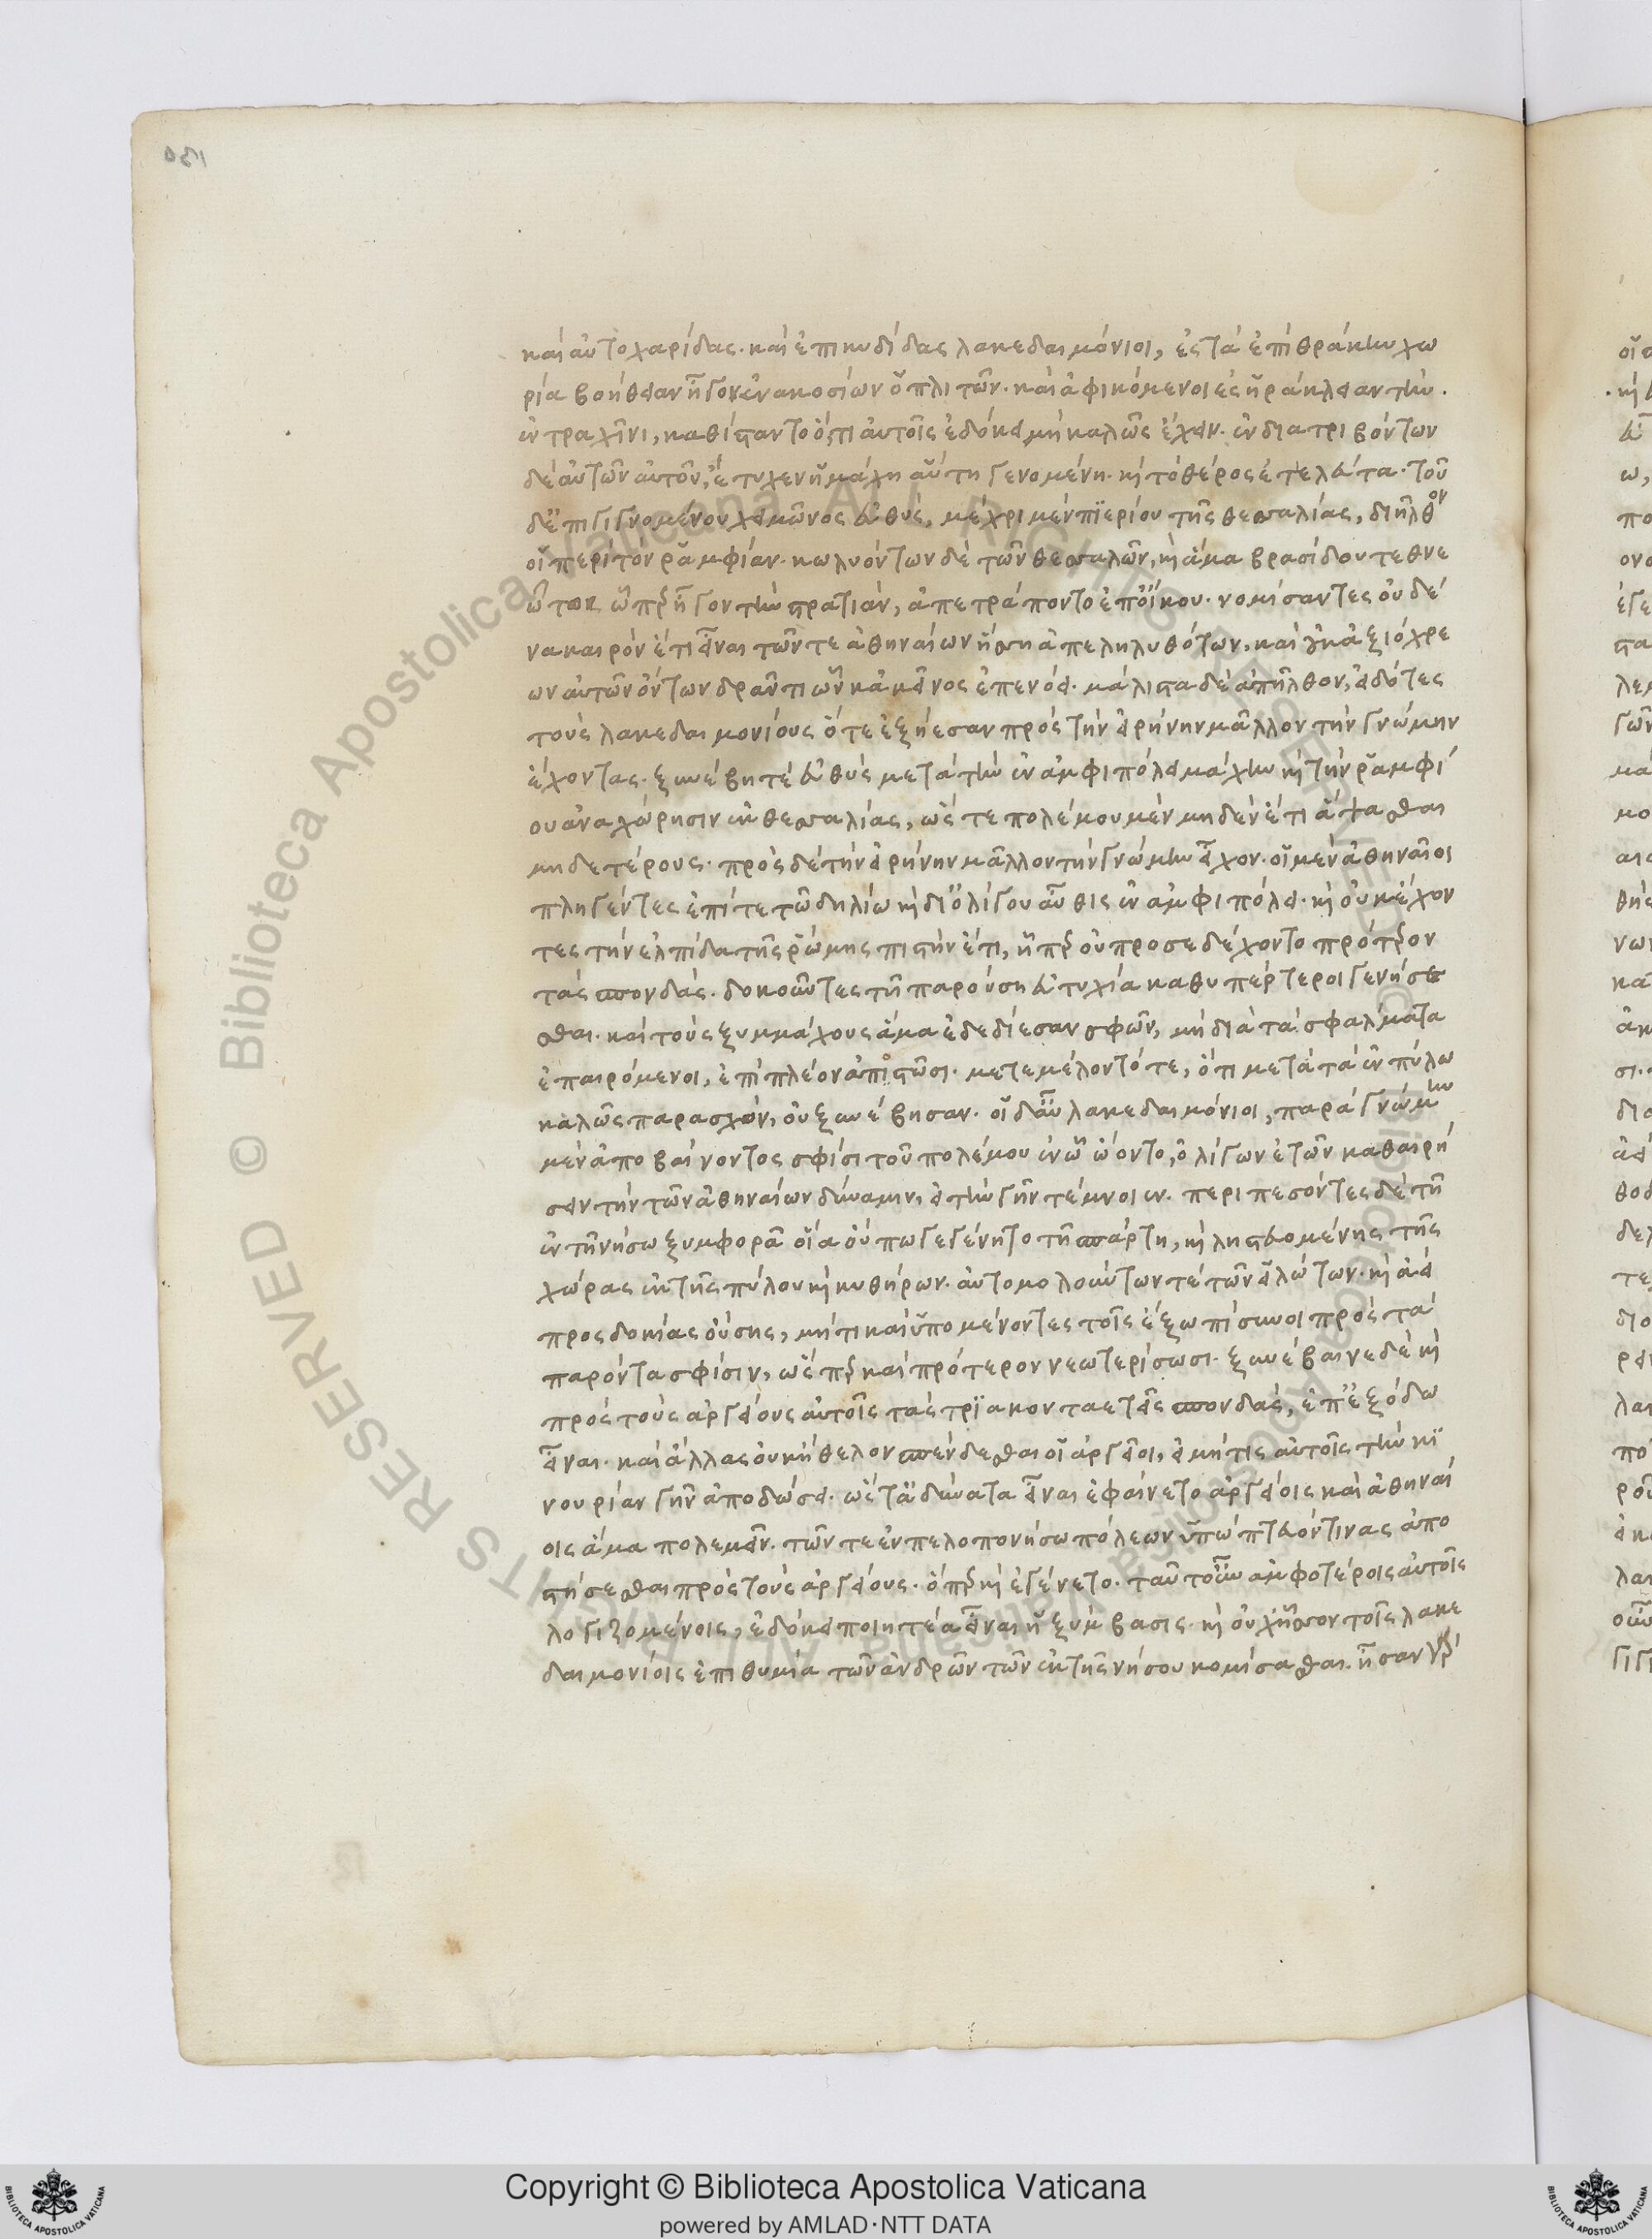 καὶ αὐτοχαρίδας. καὶ ἐπικυδίδας λακεδαιμόνιοι, ἐς τὰ ἐπὶ θράκην χω
ρία βοήθειαν ἦγον ἐνακοσίων ὁπλιτῶν. καὶ ἀφικόμενοι ἐς ἡράκλειαν τὴν
ἐν τραχῖνι, καθίσταντο ὅ,τι αὐτοῖς ἐδόκει μὴ καλῶς ἔχειν. ἐνδιατριβόντων
δὲ αὐτῶν αὐτοῦ, ἔτυχεν ἡ μάχη αὕτη γενομένη. καὶ τὸ θέρος ἐτελεύτα. τοῦ
δ' ἐπιγιγνομένου χειμῶνος εὐθὺς, μέχρι μὲν πιερίου τῆς θεσσαλίας, διῆλθον
οἱ περὶ τὸν ῥαμφίαν. κωλυόντων δὲ τῶν θεσσαλῶν, καὶ ἅμα βρασίδου τεθνε
ῶτος ὧπερ ἦγον τὴν στρατιὰν, ἀπετράποντο ἐπ' οἴκου. νομίσαντες οὐδέ
να καιρὸν ἔτι εἶναι τῶν τε ἀθηναίων ἥσση ἀπεληλυθότων. καὶ οὐκ ἀξιόχρε
ων αὐτῶν ὄντων δρᾶν τι ὧν κἀκεῖνος ἐπενόει. μάλιστα δὲ ἀπῆλθον, εἰδότες
τοὺς λακεδαιμονίους ὅτε ἐξήεσαν πρὸς τὴν εἰρήνην μᾶλλον τὴν γνώμην
ἔχοντας. ξυνέβη τε εὐθὺς μετὰ τὴν ἐν ἀμφιπόλει μάχην καὶ τὴν ῥαμφί
ου ἀναχώρησιν ἐκ θεσσαλίας, ὥστε πολέμου μὲν μηδὲν ἔτι ἅψασθαι
μηδετέρους. πρὸς δὲ τὴν εἰρήνην μᾶλλον τὴν γνώμην εἶχον. οἱ μὲν ἀθηναῖοι
πληγέντες ἐπί τε τῶ δηλίω καὶ δι' ὀλίγου αὖθις ἐν ἀμφιπόλει. καὶ οὐκ ἔχον
τες τὴν ἐλπίδα τῆς ῥώμης πιστὴν ἔτι, ἧπερ οὐ προσεδέχοντο πρότερον
τὰς σπονδάς. δοκοῦντες τῆ παρούση εὐτυχία καθυπέρτεροι γενήσε
σθαι. καὶ τοὺς ξυμμάχους ἅμα ἐδεδίεσαν σφῶν, μὴ διὰ τὰ σφάλματα
ἐπαιρόμενοι, ἐπὶ πλέον ἀποστῶσι. μετεμέλοντό τε, ὅτι μετὰ τὰ ἐν πύλω
καλῶς παρασχὸν, οὐ ξυνέβησαν. οἱ δ' αὖ λακεδαιμόνιοι, παρὰ γνώμην
μὲν ἀποβαίνοντος σφίσι τοῦ πολέμου ἐν ὧ ὤοντο, ὀλίγων ἐτῶν καθαιρή
σειν τὴν τῶν ἀθηναίων δύναμιν, εἰ τὴν γῆν τέμνοιεν. περιπεσόντες δὲ τῆ
ἐν τῆ νήσω ξυμφορᾶ οἵα οὔπω γεγένητο τῆ σπάρτη, καὶ ληστευομένης τῆς
χώρας ἐκ τῆς πύλου καὶ κυθήρων. αὐτομολούντων τε τῶν εἱλώτων. καὶ ἀεὶ
προσδοκίας οὔσης, μή τι καὶ ὑπομένοντες τοῖς ἔξω πίσυνοι πρὸς τὰ
παρόντα σφίσιν, ὥσπερ καὶ πρότερον νεωτερίσωσι. ξυνέβαινε δὲ καὶ
πρὸς τοὺς ἀργείους αὐτοῖς τὰς τριακονταετεῖς σπονδὰς, ἐπ' ἐξόδω
εἶναι. καὶ ἄλλας οὐκ ἤθελον σπένδεσθαι οἱ ἀργεῖοι, εἰ μή τις αὐτοῖς τὴν κυ
νουρίαν γῆν ἀποδώσει. ὥστ' ἀδύνατα εἶναι ἐφαίνετο ἀργείοις καὶ ἀθηναί
οις ἅμα πολεμεῖν. τῶν τε ἐν πελοπονήσω πόλεων ὑπώπτευόν τινας ἀπο
στήσεσθαι πρὸς τοὺς ἀργείους. ὅπερ καὶ ἐγένετο. ταῦτ' οὖν ἀμφοτέροις αὐτοῖς
λογιζομένοις, ἐδόκει ποιητέα εἶναι ἡ ξύμβασις. καὶ οὐχ ἧσσον τοῖς λακε
δαιμονίοις ἐπιθυμία τῶν ἀνδρῶν τῶν ἐκ τῆς νήσου κομίσασθαι. ἦσαν γὰρ
Copyright © Biblioteca Apostolica Vaticana
powered by AMLAD·NTT DATA